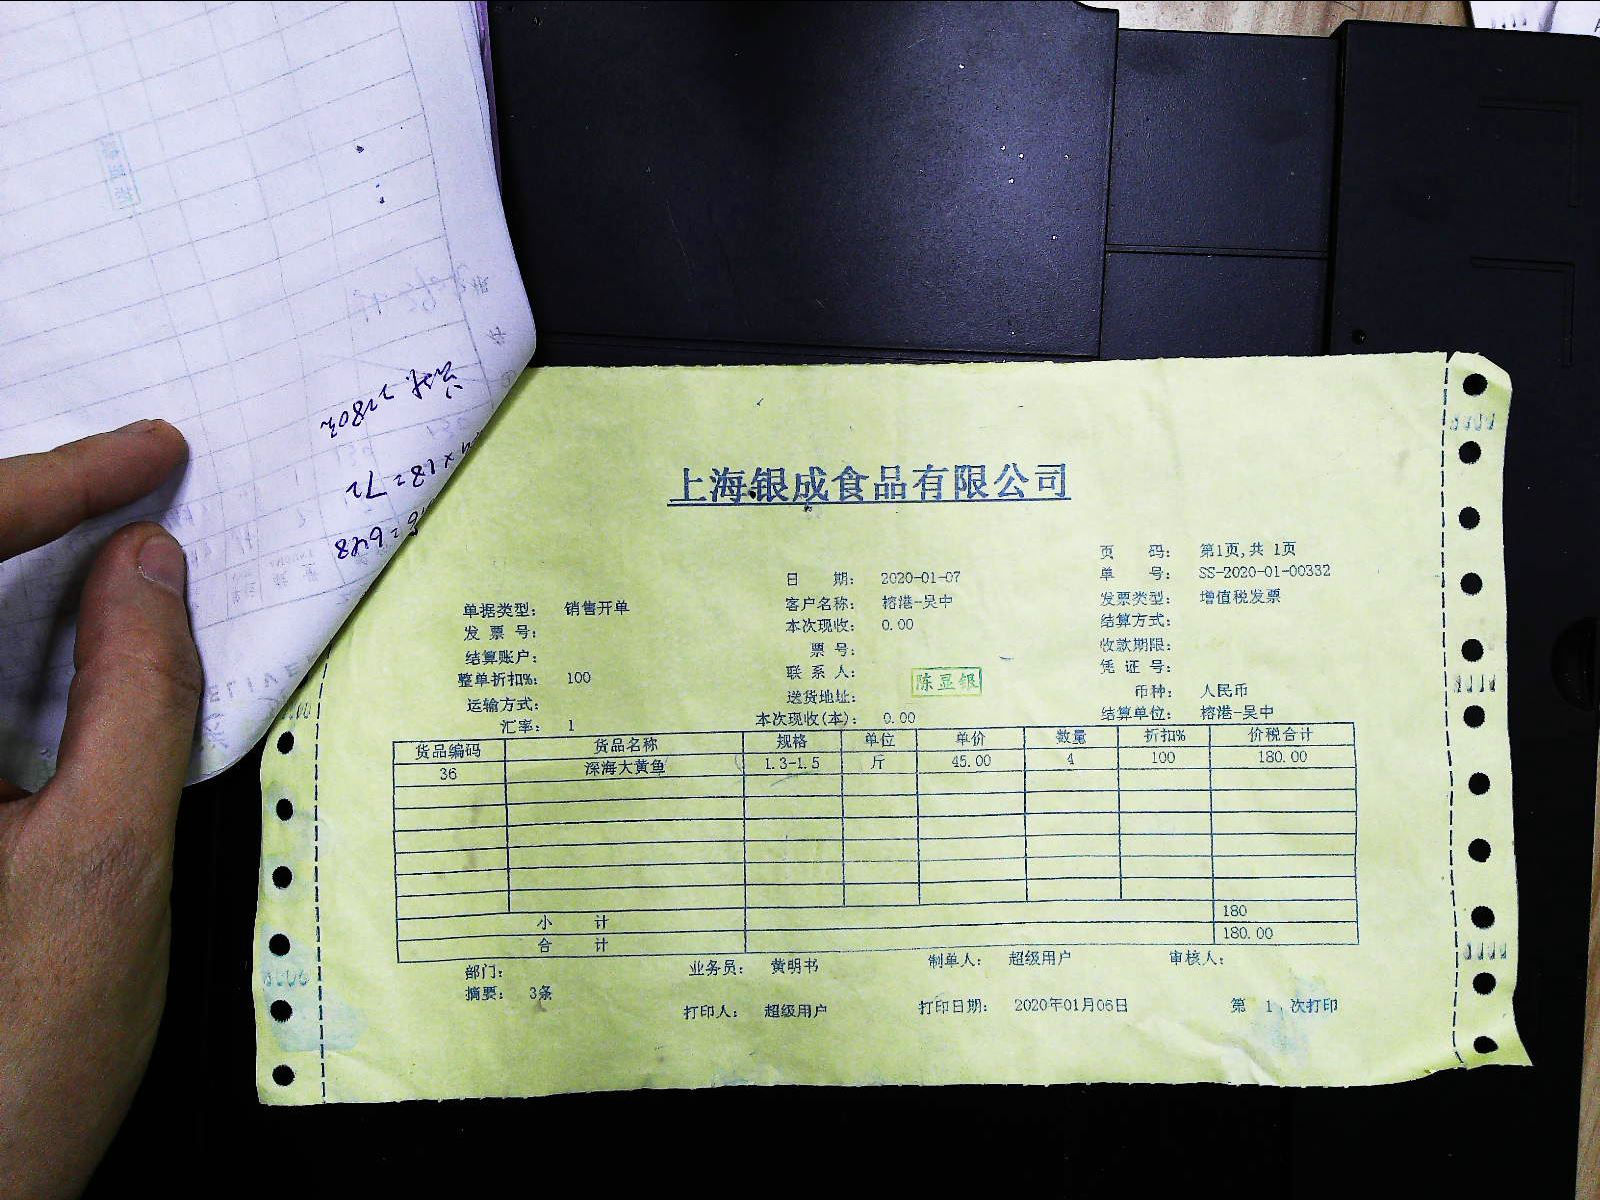 上海银成食品有限公司
页 码： 第1页,共 1页
日 期： 2020-01-07 单 号： SS-2020-01-00332
单据类型： 销售开单 客户名称： 榕港-吴中 发票类型： 增值税发票
发 票 号： 本次现收： 0.00 结算方式：
结算账户： 票 号： 收款期限：
整单折扣%： 100 联 系 人： 凭 证 号：
陈显银
运输方式： 送货地址： 币种： 人民币
汇率： 1 本次现收(本)： 0.00 结算单位： 榕港-吴中
货品编码 货品名称 规格 单位 单价 数量 折扣% 价税合计
36 深海大黄鱼 1.3-1.5 斤 45.00 4 100 180.00
小 计 180
合 计 180.00
部门： 业务员： 黄明书 制单人： 超级用户 审核人：
摘要： 3条
打印人： 超级用户 打印日期： 2020年01月06日 第 1 次打印
=648
×18=72